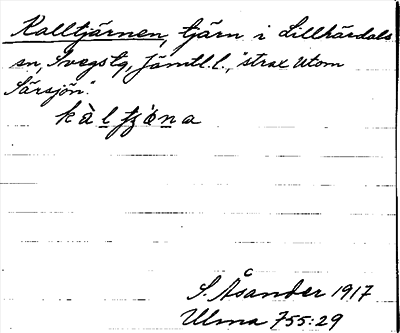 Kalltjärnen, tjärn i Lillhärdals
sn, Svegs tg, Jämtl. l., "strax utom
Särsjön".
kàltjóna
S. Åsander 1917
Ulma 755:29